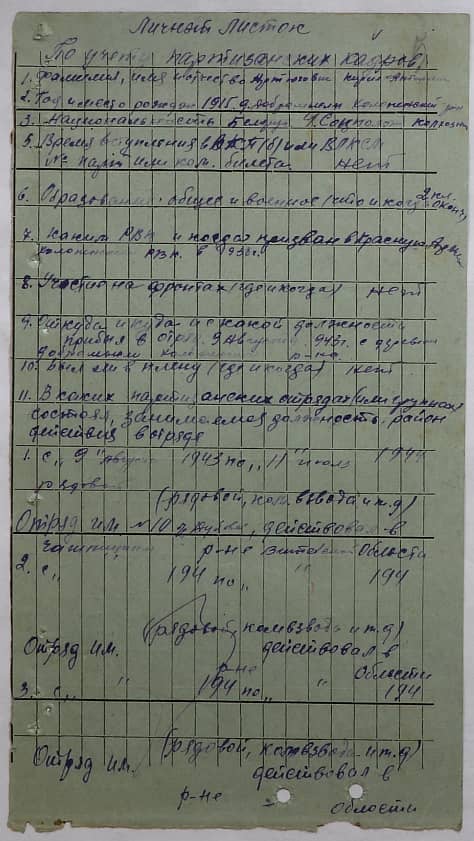 Личный Листок
По учету партизанских кадров
1. Фамилия, имя и отчество
2. Год и место рожден 1915 г.
3. Национальность Белорус 4. Соцполож колхозн
5. Время вступления в ВКП(б) или ВЛКСМ
№ парт или ком. билета. нет
6. Образование общее и военное (что и когда окон) 2 кл.
7. Каким РВК и когда призван в Красную Армию
РВК. в
8. Участие на фронтах (где и когда) нет
9. Откуда и куда и с какой должности
прибыл в отряд 9 Августа 1943 г. с деревни
р-на.
10. Был ли в плену (где и когда) нет
11. В каких партизанских отрядах (или группах)
состоял, занимаемая должность. район
действия отряда
1. с „ 9 " Августа 1943 по „ 11 " июля 1944
рядовой
(рядовой, ком. взвода и т.д)
Отряд им. №10, действовал в
р-не Области
2. с „ 194 по „ " 194
(рядовой, ком взвода и т.д)
Отряд им. действовал в
р-не Области
3. с „ " 194 по „ " 194
(рядовой, ком взвода и т.д)
Отряд им. действовал в
р-не области